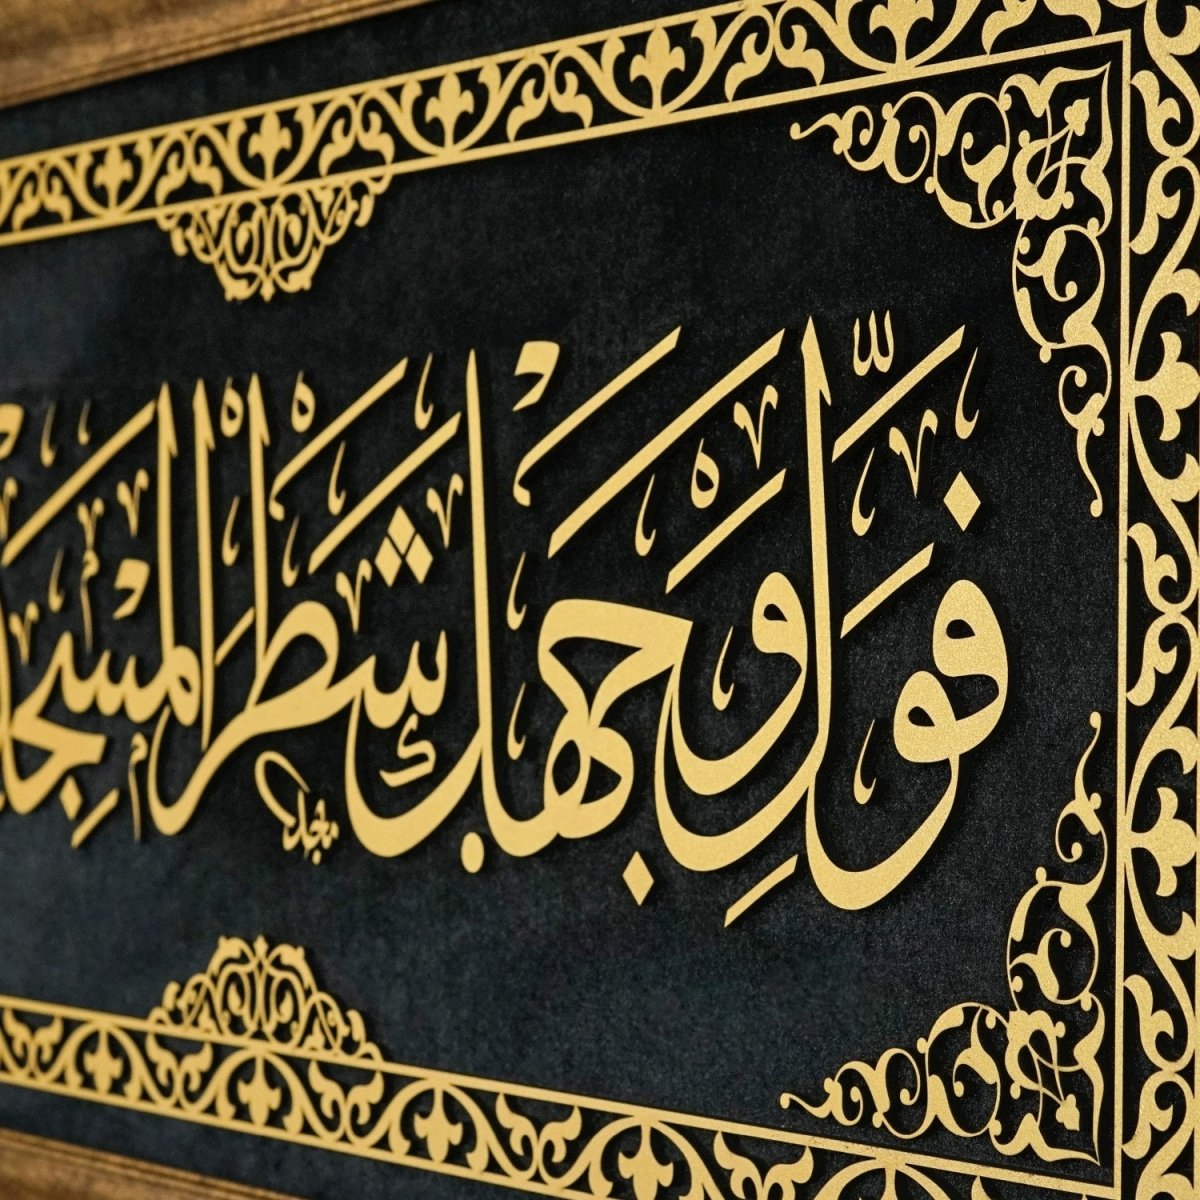 فَوَلِّ وَجْهَكَ شَطْرَ الْمَسْجِ